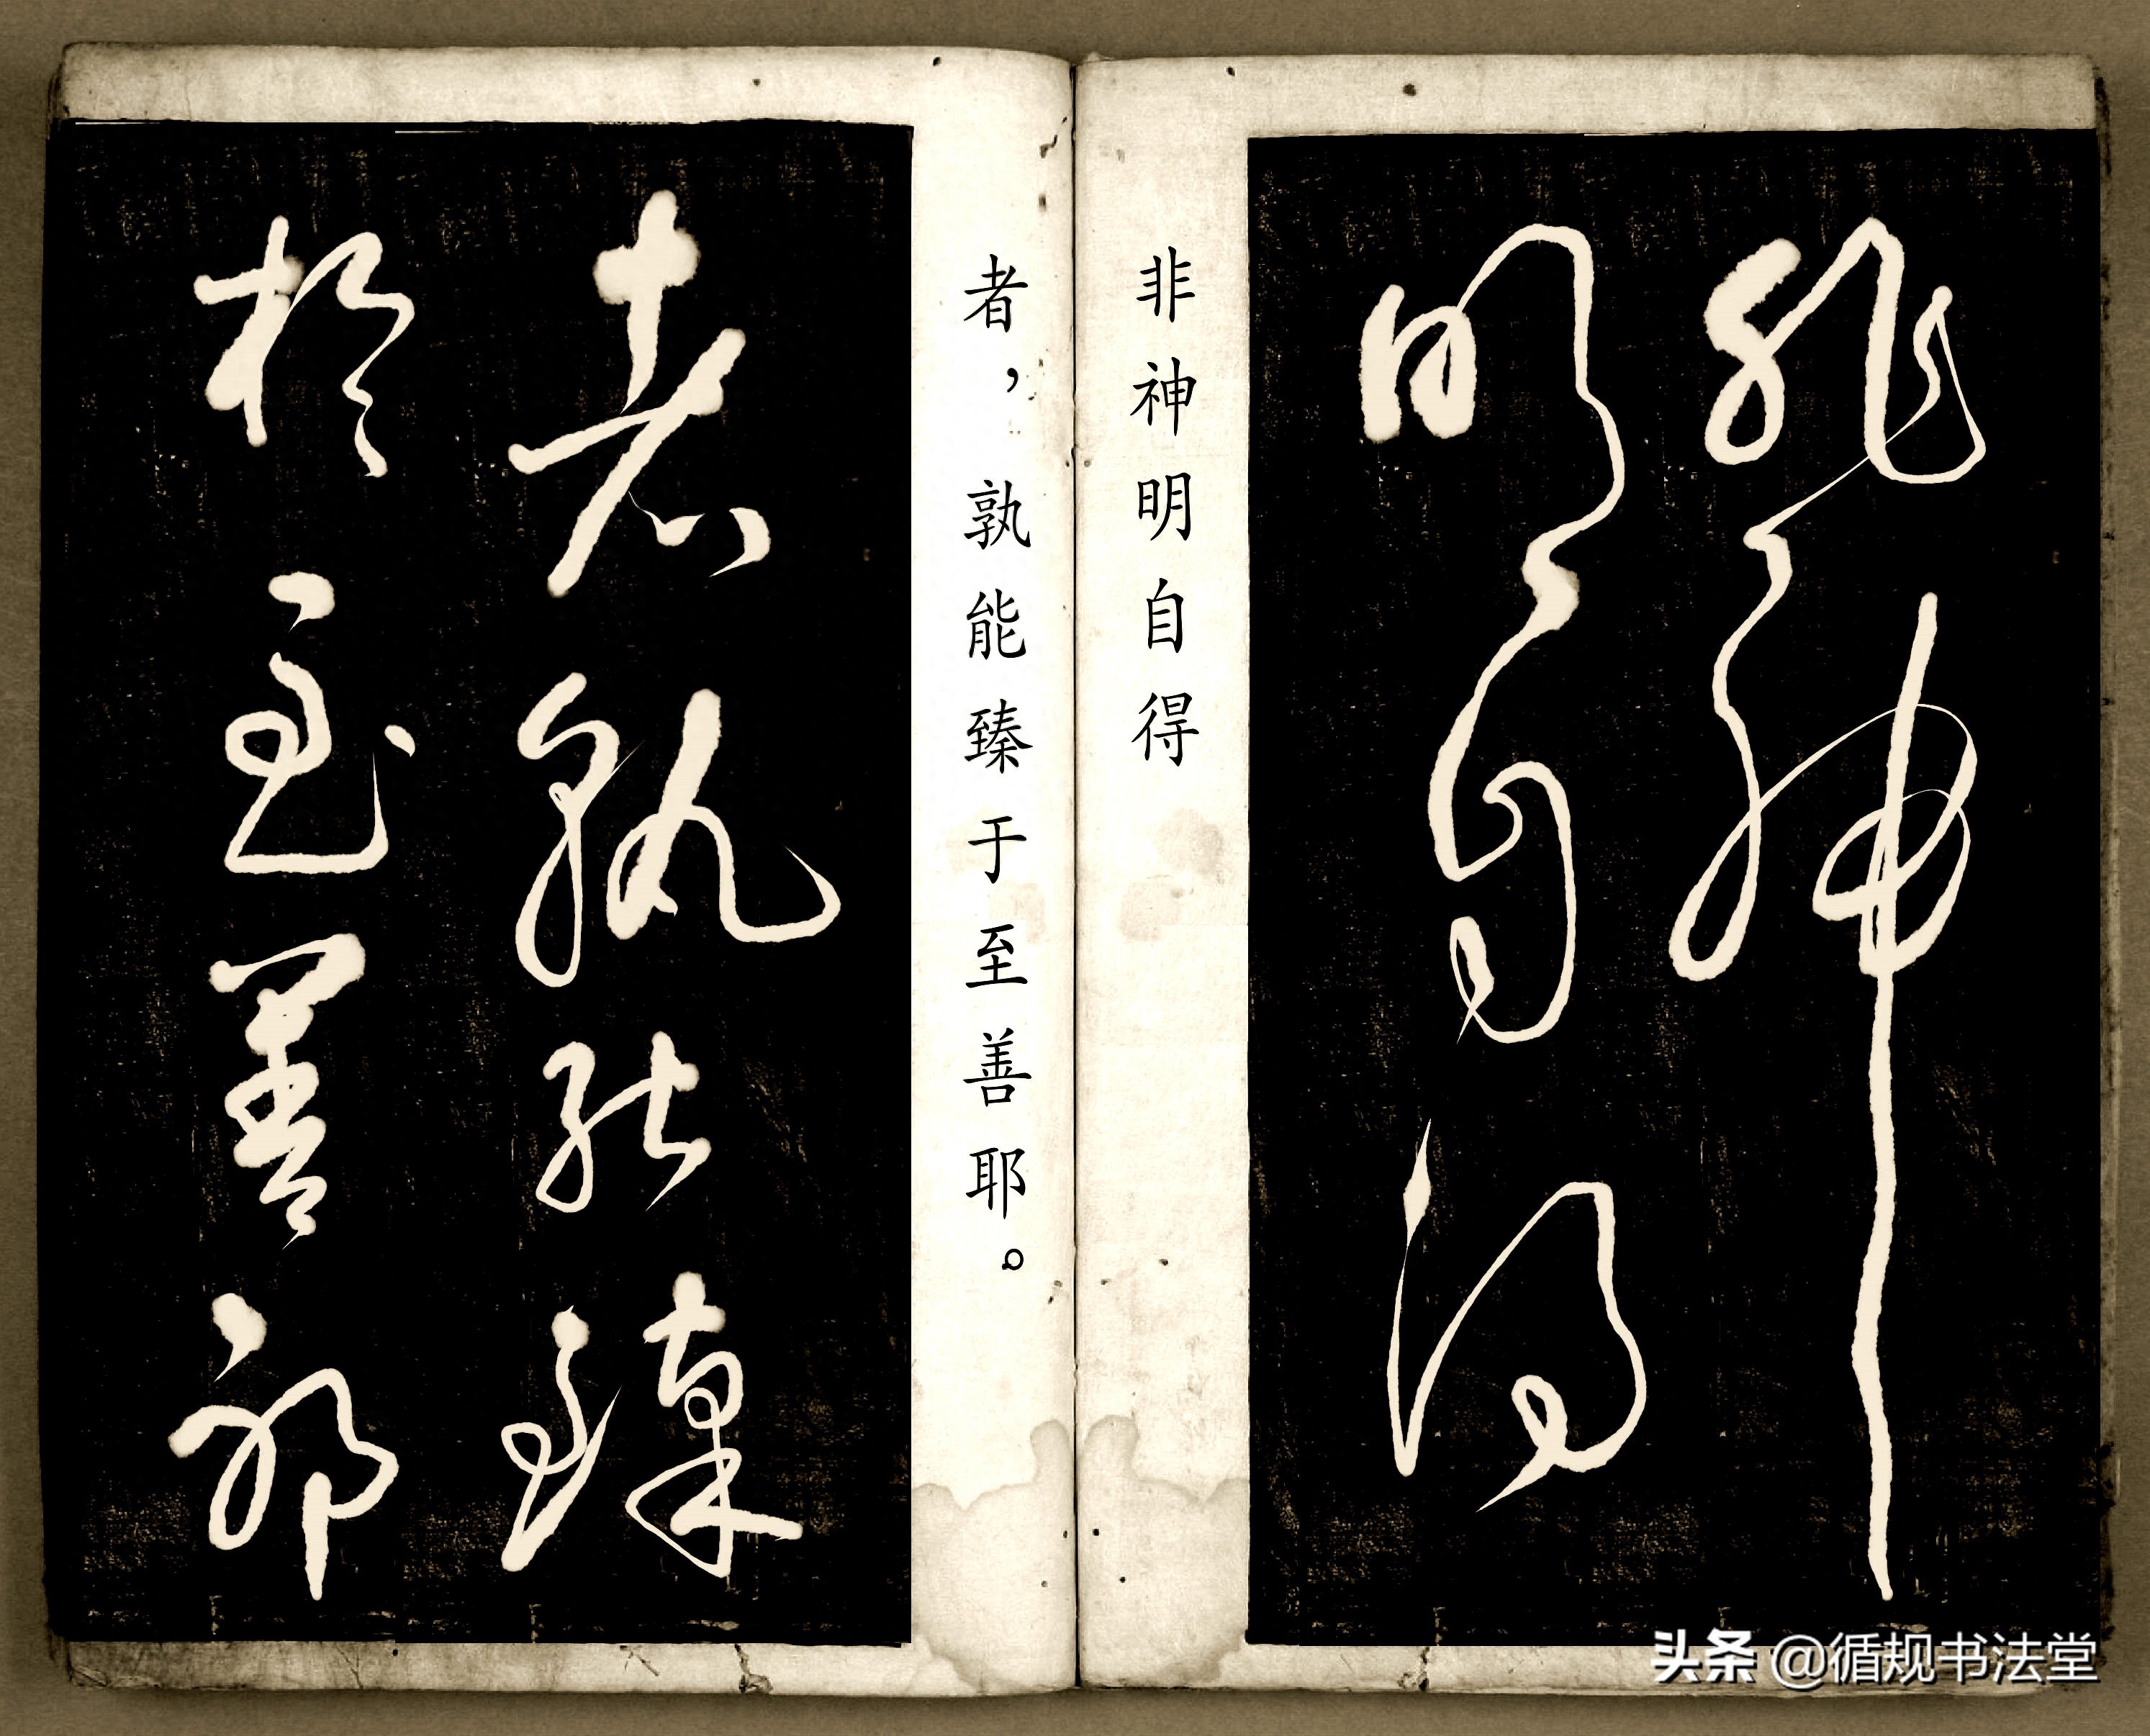 非神
明自得
非神明自得
者，孰能臻于至善耶。
者孰能臻
於至善耶
头条 @循规书法堂